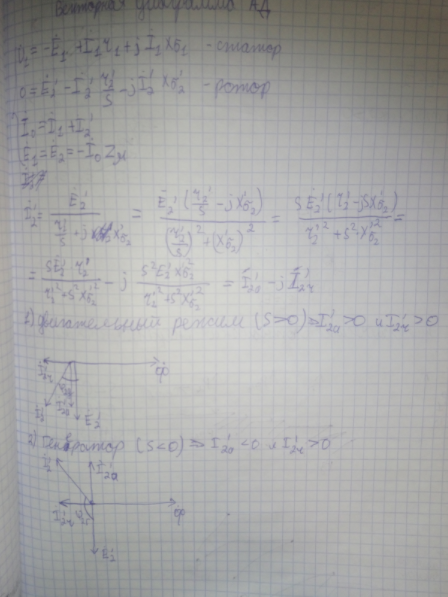 Векторная диаграмма АД
U̇₁ = -Ė₁ + İ₁ r₁ + j İ₁ xσ₁ - статор
0 = Ė₂' - İ₂' r₂'/s - j İ₂' xσ₂' - ротор
İ₀ = İ₁ + İ₂'
Ė₁ = Ė₂' = -İ₀ Zм
İ₂' = Ė₂' / (r₂'/s + j xσ₂') = Ė₂' (r₂'/s - j xσ₂') / ((r₂'/s)² + (xσ₂')²) = s Ė₂' (r₂' - j s xσ₂') / (r₂'² + s² xσ₂'²) =
= s Ė₂' r₂' / (r₂'² + s² xσ₂'²) - j s² Ė₂' xσ₂' / (r₂'² + s² xσ₂'²) = İ₂а' - j İ₂r'
1) двигательный режим (S>0) ⇒ I₂а' > 0 и I₂r' > 0
I₂r' Ф
I₂' I₂а' Ė₂'
2) Генератор (S<0) ⇒ I₂а' < 0 и I₂r' > 0
I₂' I₂а'
I₂r' Ф
Ė₂'